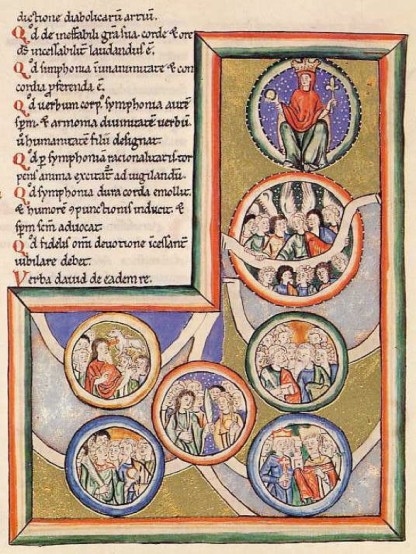 dictione diabolicarū artiū.
Qd de ineffabili grā sua corde & ore
ds incessabilit laudandus ē.
Qd symphonia ī unanimitate & con
cordia pferenda ē.
Qd verbum corp symphonia autē
spm & armonia diuinitatē uerbū
ū humanitatē filii designat.
Qd p symphoniā racionalitatis tor
pens anima excitat ad uigilandū.
Qd symphonia dura corda emollit
& humorē cpunctionis inducit &
spm scm aduocat.
Qd fidelis omi deuotione icessant
iubilare debet.
Verba dauid de eadem re.